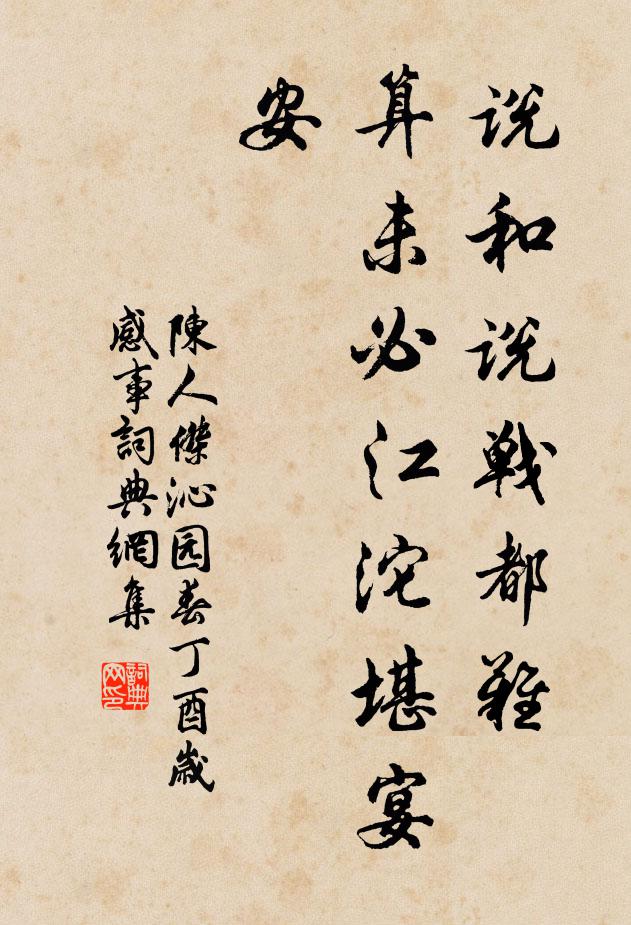 说和说戦都難
算未必江沱堪宴
安
陳人傑沁园春丁酉歲
感事詞典網集
詞典
网印